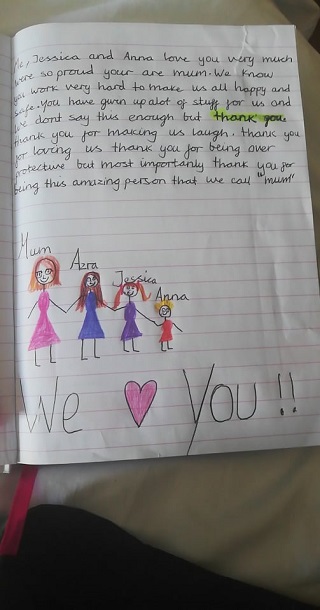 Me, Jessica and Anna love you very much
were so proud your are mum. We know
you work very hard to make us all happy and
safe. You have given up alot of stuff for us and
we dont say this enough but thank you
thank you for making us laugh. thank you
for loving us thank you for being over
protective but most importanly thank you for
being this amazing person that we call "mum"
Mum
Azra
Jessica
Anna
We You !!